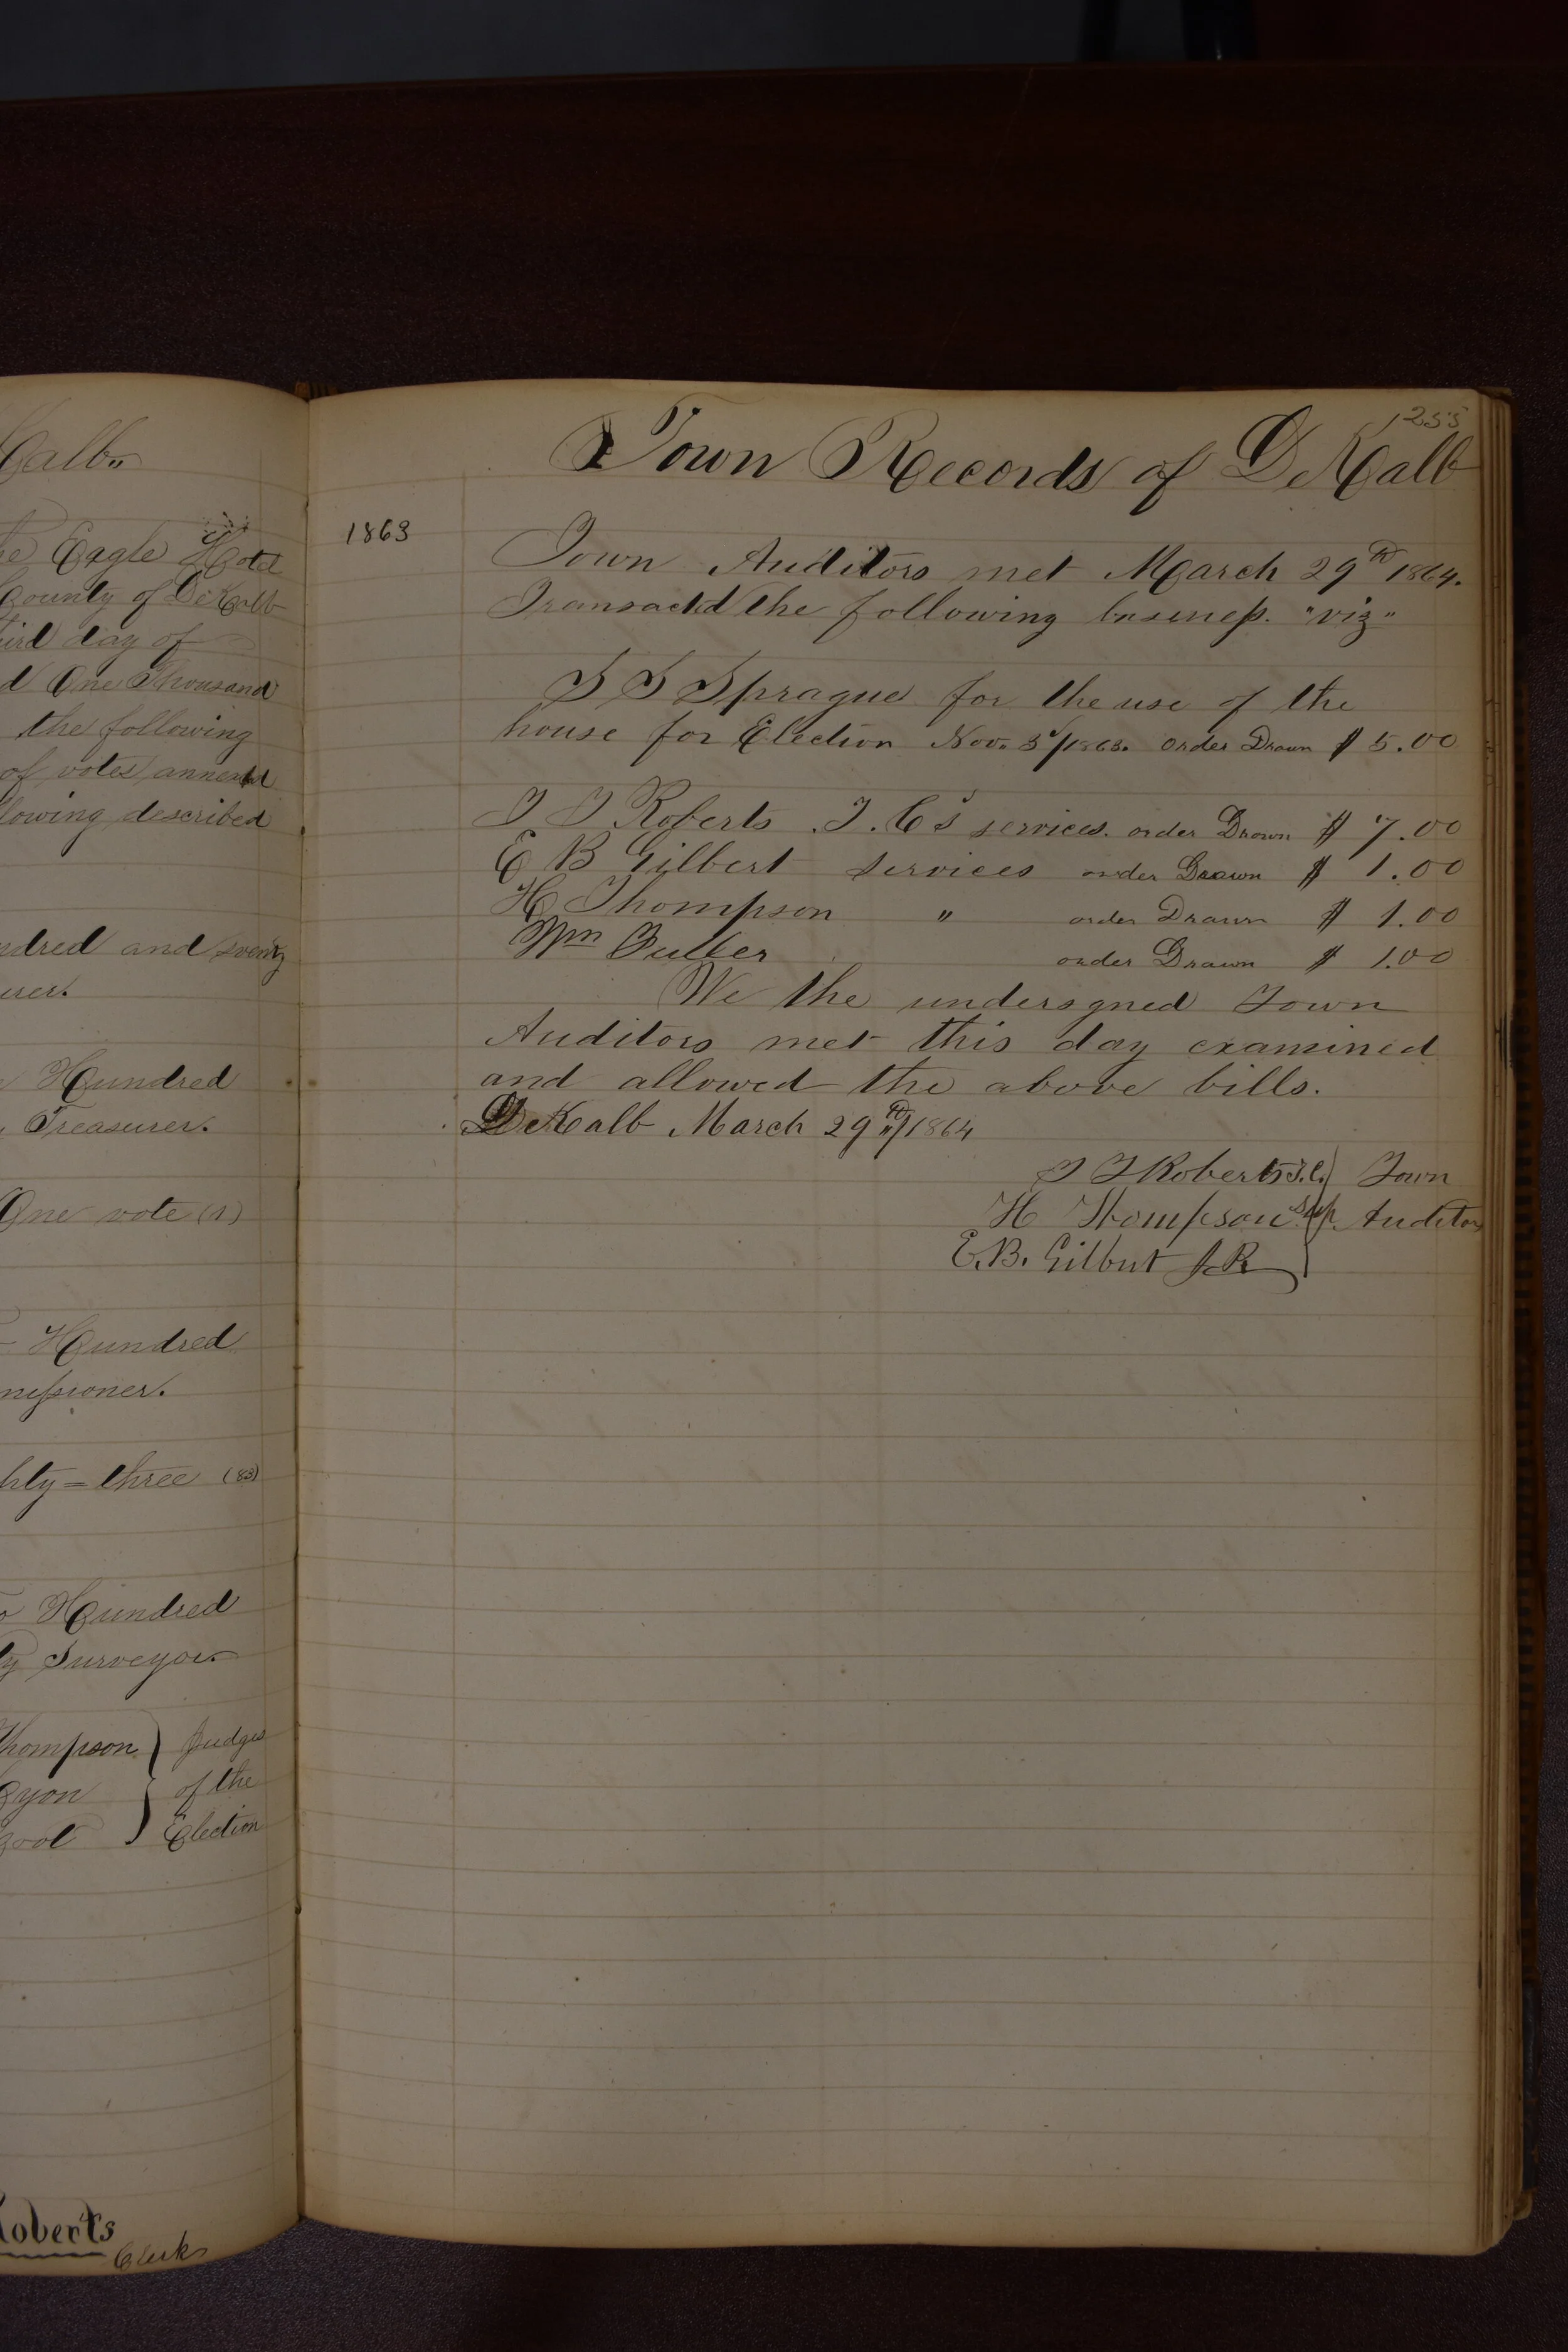 Kalb„
Eagle Hotel
County of DeKalb
day of
One Thousand
the following
of votes annexed
described
and
Hundred
Treasurer.
One vote (1)
Hundred
three (83)
Hundred
Surveyor
Thompson } Judges
of the
Election
Roberts
Clerk
255
Town Records of DeKalb
1863
Town Auditors met March 29th 1864.
Transactd the following busineſs. "viz"
S S Sprague for the use of the
house for Election Nov. 3d/1863. order Drawn $ 5.00
T T Roberts T.C's services. order Drawn $ 7.00
E B Gilbert services order Drawn $ 1.00
H Thompson " order Drawn $ 1.00
Wm Fuller order Drawn $ 1.00
We the undersgned Town
Auditors met this day examined
and allowed the above bills.
DeKalb March 29th/1864
T T Roberts T.C. } Town
H Thompson Sup. Auditors
E.B. Gilbert